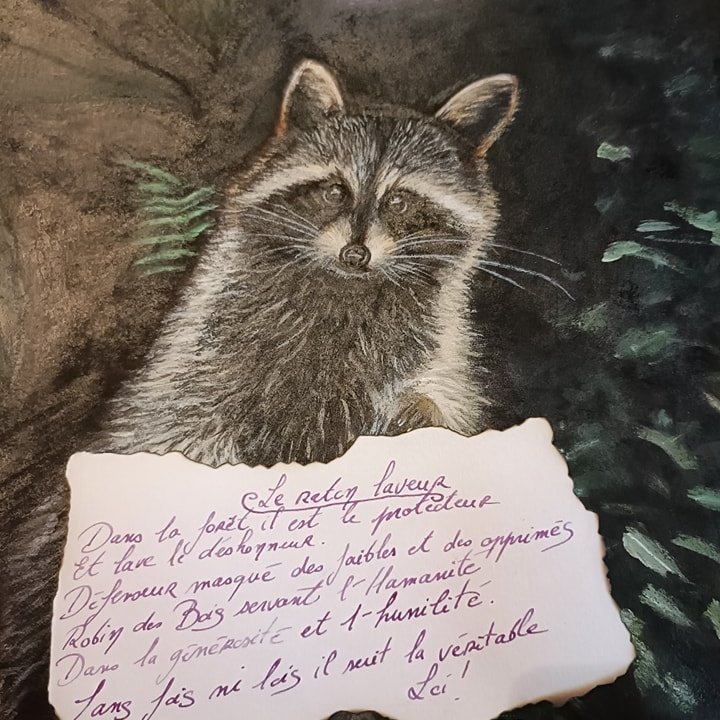 Le raton laveur
Dans la forêt il est le protecteur
Et lave le déshonneur.
Défenseur masqué des faibles et des opprimés
Robin des Bois servant l'Humanité
Dans la générosité et l'humilité.
Sans fois ni lois il suit la véritable
Loi !